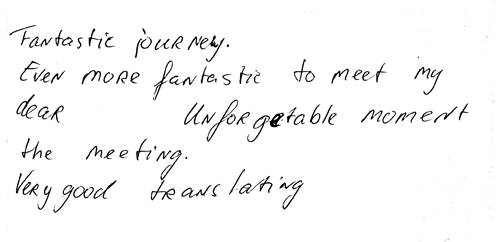 Fantastic journey.
Even more fantastic to meet my
dear Unforgetable moment
the meeting.
Very good translating